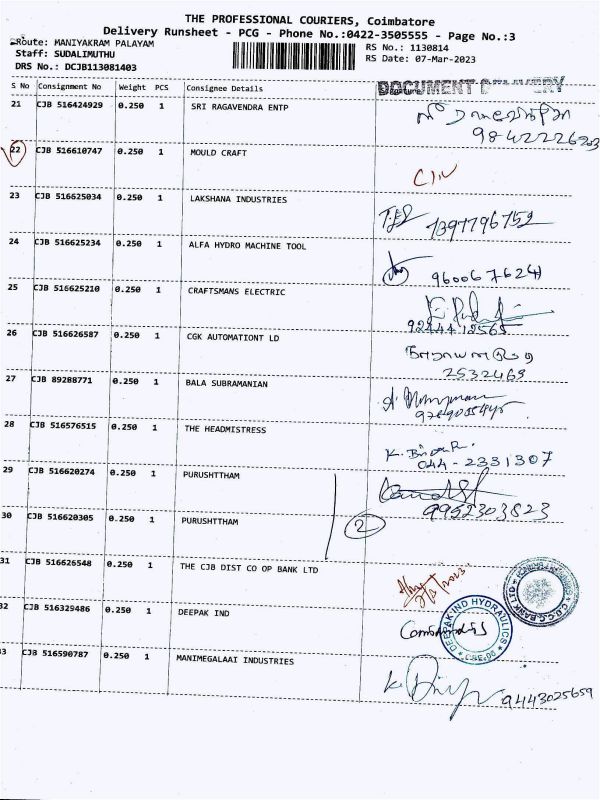 THE PROFESSIONAL COURIERS, Coimbatore
Delivery Runsheet - PCG - Phone No.:0422-3505555 - Page No.:3
Route: MANIYAKRAM PALAYAM
Staff: SUDALIMUTHU
DRS No.: DCJB113081403
RS No.: 1130814
RS Date: 07-Mar-2023
DOCUMENT DELIVERY
S No Consignment No Weight PCS Consignee Details
21 CJB 516424929 0.250 1 SRI RAGAVENDRA ENTP
9842226203
22 CJB 516610747 0.250 1 MOULD CRAFT
23 CJB 516625034 0.250 1 LAKSHANA INDUSTRIES
7397796752
24 CJB 516625234 0.250 1 ALFA HYDRO MACHINE TOOL
25 CJB 516625210 0.250 1 CRAFTSMANS ELECTRIC
9244412565
26 CJB 516626587 0.250 1 CGK AUTOMATIONT LD
2532469
27 CJB 89288771 0.250 1 BALA SUBRAMANIAN
28 CJB 516576515 0.250 1 THE HEADMISTRESS
044-2331307
29 CJB 516620274 0.250 1 PURUSHTTHAM
9952303823
30 CJB 516620305 0.250 1 PURUSHTTHAM
2
31 CJB 516626548 0.250 1 THE CJB DIST CO OP BANK LTD
C.D.C.C. BANK LTD
32 CJB 516329486 0.250 1 DEEPAK IND
DEEPAK IND HYDRAULICS
33 CJB 516590787 0.250 1 MANIMEGALAAI INDUSTRIES
9443025659